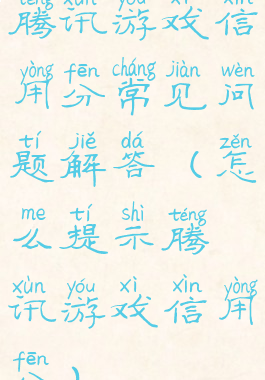 téng xùn yóu xì xìn
腾讯游戏信
yòng fēn cháng jiàn wèn
用分常见问
tí jiě dá zěn
题解答（怎
me tí shì téng
么提示腾
xùn yóu xì xìn yòng
讯游戏信用
fēn
分）